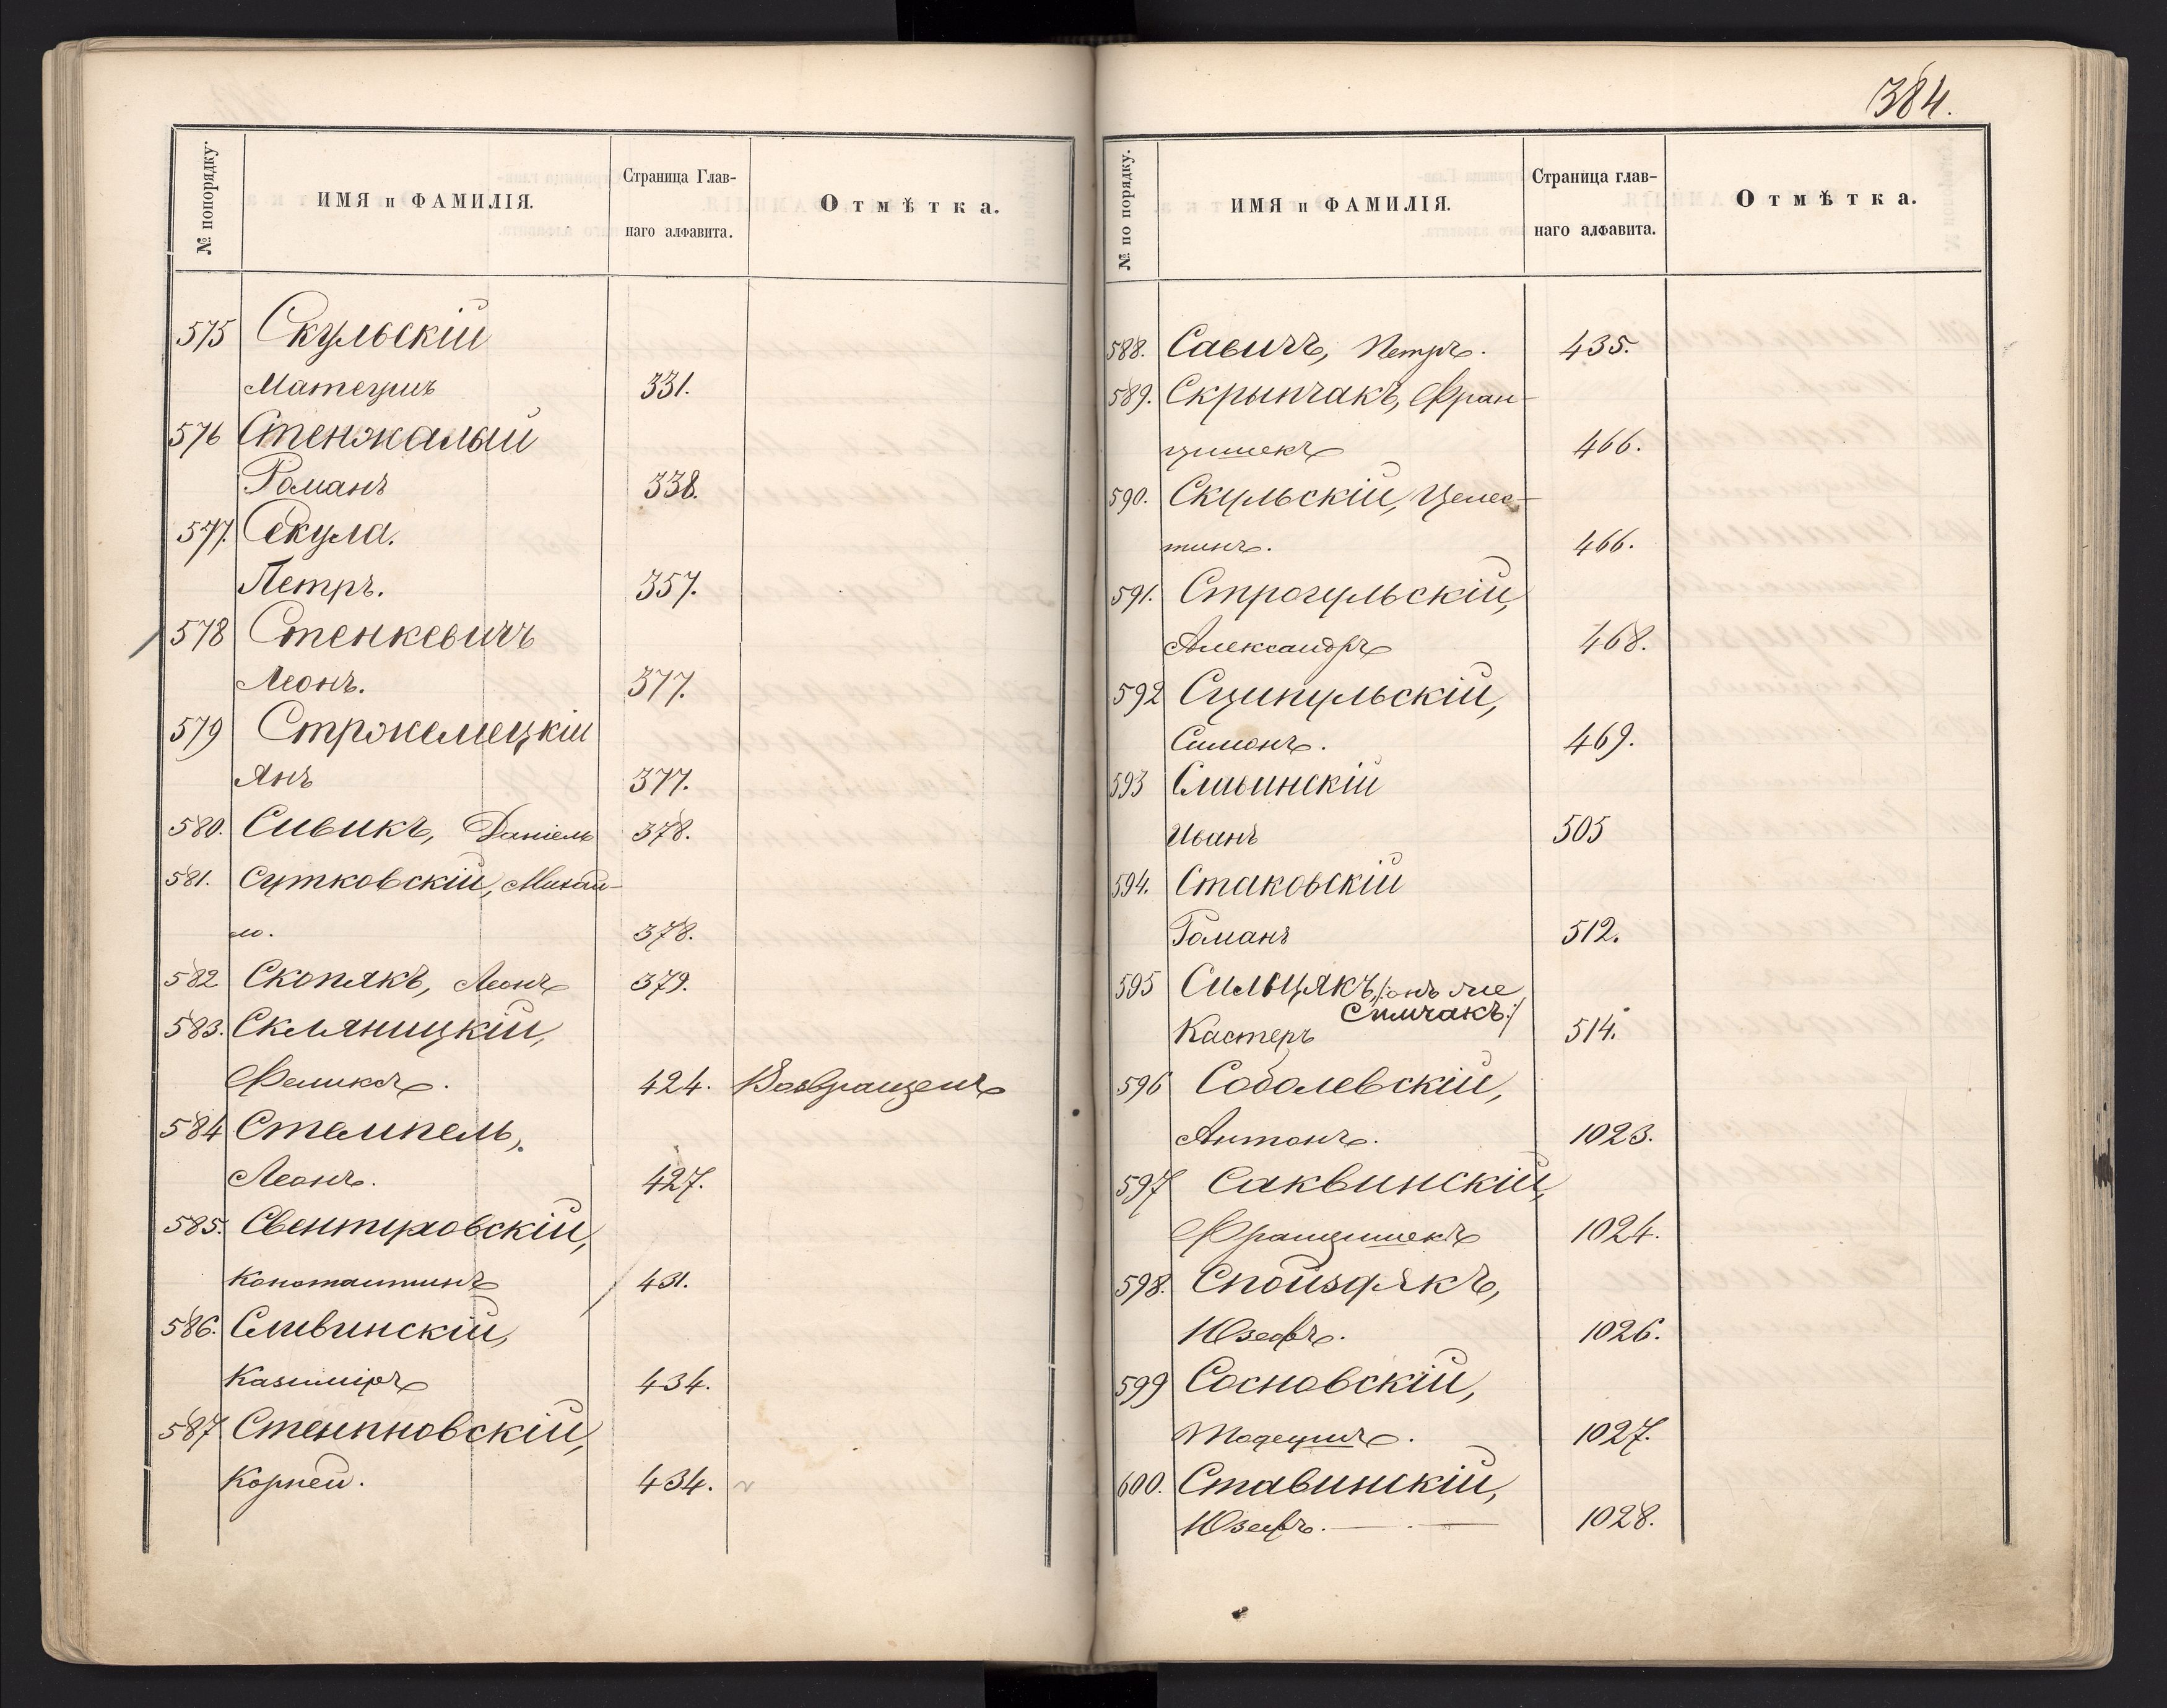 384.
№ попорядку.
ИМЯ и ФАМИЛІЯ.
Страница Глав-
наго алфавита.
Отмѣтка.
575 Скульскій
Матеушъ 331.
576 Стенжалый
Романъ 338.
577. Секула.
Петръ. 357.
578 Стенкевичъ
Леонъ. 377.
579 Стржемецкій
Янъ 377.
580. Сивикъ, Даніель 378.
581. Сутковскій, Михаи-
ло. 378.
582 Скопякъ, Леонъ 379.
583. Скляницкій,
Феликсъ. 424. Возвращенъ
584 Стемпель,
Леонъ. 427.
585. Свентуховскій,
Константинъ 431.
586. Сливинскій,
Казиміръ 434.
587 Стемпновскій,
Корней. 434.
№ по порядку.
ИМЯ и ФАМИЛІЯ.
Страница глав-
наго алфавита.
Отмѣтка.
588. Савичъ, Петръ. 435.
589. Скрыпчакъ, Фран-
цишекъ 466.
590. Скульскій, Целес-
тинъ. 466.
591. Строгульскій,
Александръ 468.
592 Сципульскій,
Симонъ. 469.
593 Сливинскій
Иванъ 505
594. Стаковскій
Романъ 512.
595 Сильцякъ, /:онъ же
Спичакъ:/
Кастеръ 514.
596 Соболевскій,
Антонъ. 1023.
597 Саквинскій,
Францишекъ 1024.
598. Спойздякъ,
Юзефъ. 1026.
599 Сосновскій,
Тадеушъ. 1027.
600. Ставинскій,
Юзефъ. 1028.